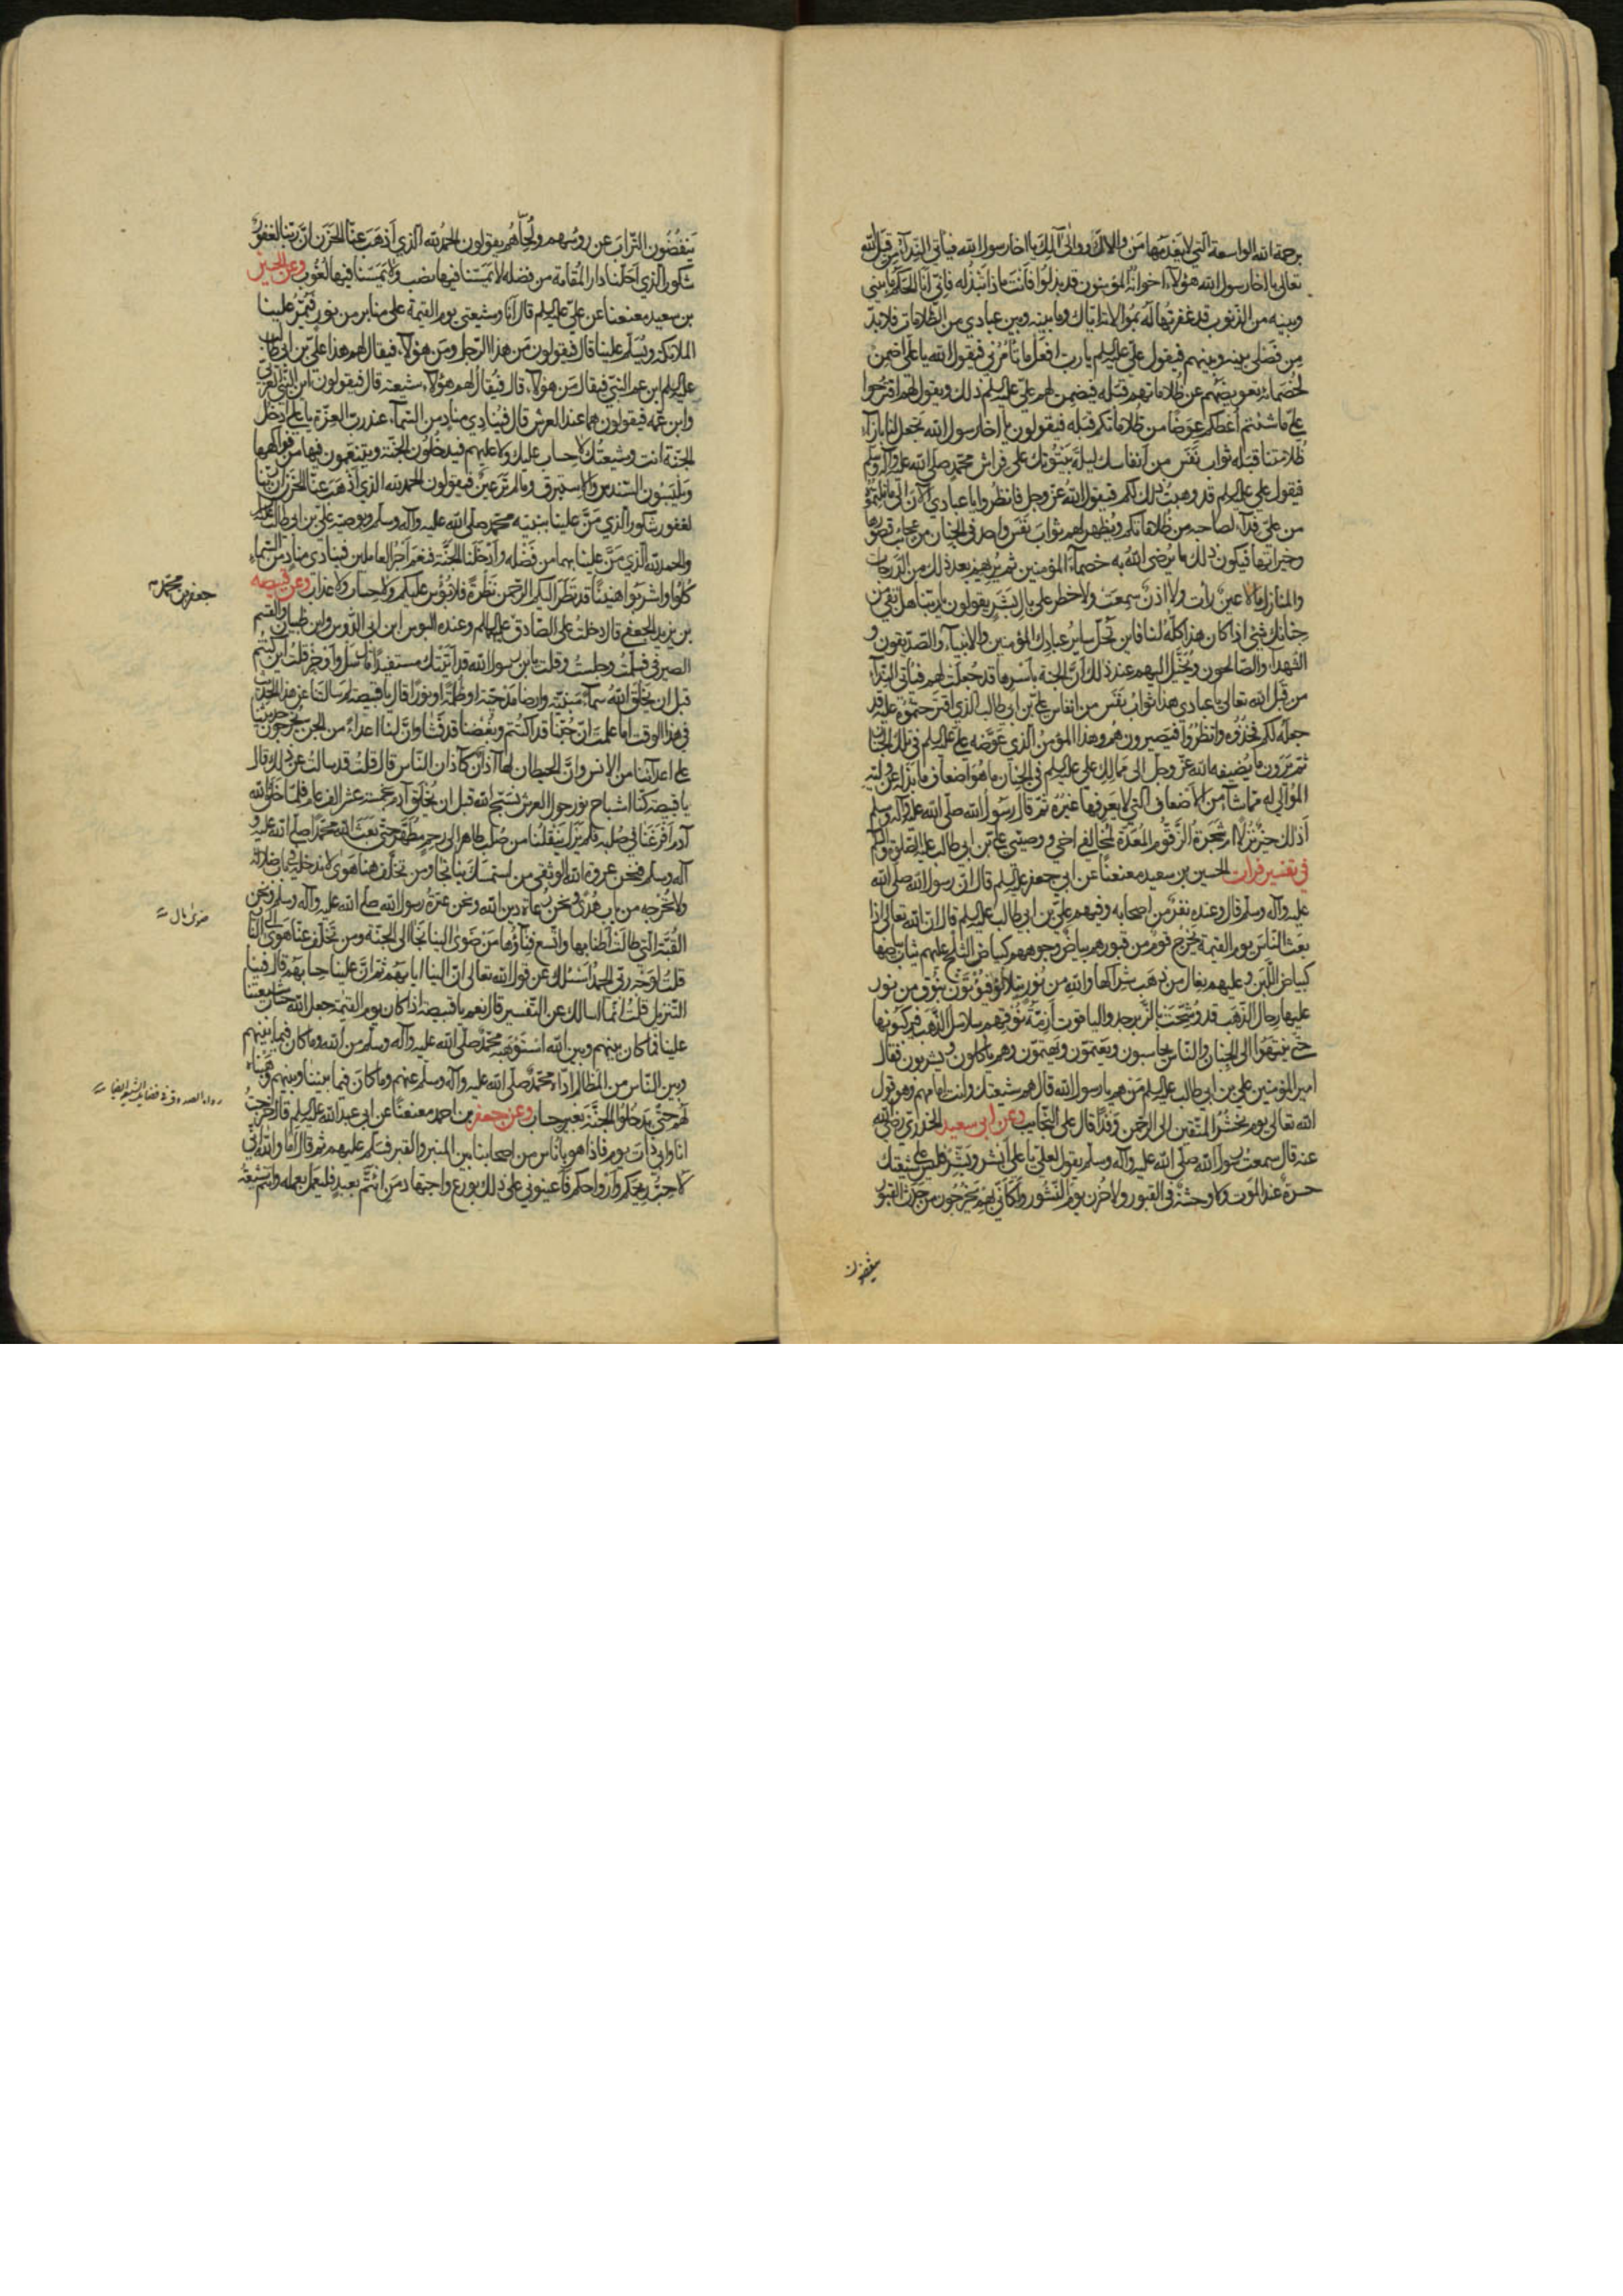 برحمة الله الواسعة التي لا يعدمها من والاك ووالى آلك يا اخا رسول الله فيأتي النداء من قبل الله
تعالى يا اخا رسول الله هؤلاء اخوانه المؤمنون قد بذلوا فأنت ماذا تبذل له فاني انا الحكم ما بيني
وبينه من الذنوب قد غفرتها له بموالاته اياك وما بينه وبين عبادي من الظلامات فلا بد
من فصلي بينه وبينهم فيقول علي عليه السلم يا رب افعل ما تأمرني فيقول الله يا علي اضمن
لخصمائه تعويضهم عن ظلاماتهم قبله فيضمن لهم علي عليه السلم ذلك ويقول لهم اقترحوا
علي ما شئتم اعطكم عوضا من ظلاماتكم قبله فيقولون يا اخا رسول الله تجعل لنا بازاء
ظلامتنا قبله ثواب نفس من انفاسك ليلة بيتوتك على فراش محمد صلى الله عليه وآله وسلم
فيقول علي عليه السلم قد وهبت ذلك لكم فيقول الله عز وجل فانظروا يا عبادي الآن الى ما نلتموه
من علي فداء لصاحبه من ظلاماتكم ويظهر لهم ثواب نفس واحد في الجنان من عجائب قصورها
وخيراتها فيكون ذلك ما يرضي الله به خصماء المؤمنين ثم يريهم بعد ذلك من الدرجات
والمنازل ما لا عين رأت ولا اذن سمعت ولا خطر على بال بشر يقولون يا ربنا هل بقي من
جناتك شئ اذا كان هذا كله لنا فاين تحل ساير عبادك المؤمنين والانبياء والصديقون و
الشهداء والصالحون ويخيل اليهم عند ذلك ان الجنة باسرها قد جعلت لهم فيأتي النداء
من قبل الله تعالى يا عبادي هذا ثواب نفس من انفاس علي بن ابي طالب الذي اقترحتموه عليه قد
جعله لكم فخذوه وانظروا فيصيرون هم وهذا المؤمن الذي عوضه علي عليه السلم في تلك الجنان
ثم يرون ما يضيفه الله عز وجل الى ممالك علي عليه السلم في الجنان ما هو اضعاف ما بذله عن وليه
الموالي له مما شاء من الاضعاف التي لا يعرفها غيره ثم قال رسول الله صلى الله عليه وآله وسلم
أذلك خير نزلا ام شجرة الزقوم المعدة لمخالفي اخي ووصيي علي بن ابي طالب عليه الصلوة والسلم
في تفسير فرات الحسين بن سعيد معنعنا عن ابي جعفر عليه السلم قال ان رسول الله صلى الله
عليه وآله وسلم قال وعنده نفر من اصحابه وفيهم علي بن ابي طالب عليه السلم قال ان الله تعالى اذا
بعث الناس يوم القيمة يخرج قوم من قبورهم بياض وجوههم كبياض الثلج عليهم ثياب بياضها
كبياض اللبن وعليهم نعال من ذهب شراكها والله من نور يتلألؤ فيؤتون بنوق من نور
عليها رحال الذهب قد وشحت بالزبرجد والياقوت ازمة نوقهم سلاسل الذهب فيركبونها
حتى ينتهوا الى الجنان والناس يحاسبون ويغتمون ويهتمون وهم يأكلون ويشربون فقال
امير المؤمنين علي بن ابي طالب عليه السلم من هم يا رسول الله قال هم شيعتك وانت امامهم وهو قول
الله تعالى يوم نحشر المتقين الى الرحمن وفدا قال على النجايب وعن ابي سعيد الخدري رضي الله
عنه قال سمعت رسول الله صلى الله عليه وآله وسلم يقول لعلي يا علي ابشر وبشر فليس على شيعتك
حسرة عند الموت ولا وحشة في القبور ولا حزن يوم النشور ولكأني بهم يخرجون من جدث القبور
ينفضون
ينفضون التراب عن رؤسهم ولحاهم يقولون الحمد لله الذي اذهب عنا الحزن ان ربنا لغفور
شكور الذي احلنا دار المقامة من فضله لا يمسنا فيها نصب ولا يمسنا فيها لغوب وعن الحسين
بن سعيد معنعنا عن علي عليه السلم قال انا وشيعتي يوم القيمة على منابر من نور فيمر علينا
الملائكة ويسلم علينا قال فيقولون من هذا الرجل ومن هؤلاء فيقال لهم هذا علي بن ابي طالب
عليه السلم ابن عم النبي فيقال من هؤلاء قال فيقال لهم هؤلاء شيعته قال فيقولون اين النبي العربي
وابن عمه فيقولون هما عند العرش قال فينادي مناد من السماء عند رب العزة يا علي ادخل
الجنة انت وشيعتك لا حساب عليك ولا عليهم فيدخلون الجنة ويتنعمون فيها من فواكهها
ويلبسون السندس والاستبرق وما لم تر عين فيقولون الحمد لله الذي اذهب عنا الحزن ان ربنا
لغفور شكور الذي من علينا بنبيه محمد صلى الله عليه وآله وسلم وبوصيه علي بن ابي طالب عليه السلم
والحمد لله الذي من علينا بهما من فضله وادخلنا الجنة فنعم اجر العاملين فينادي مناد من السماء
كلوا واشربوا هنيئا قد نظر اليكم الرحمن نظرة فلا بؤس عليكم ولا حساب ولا عذاب وعن قبيصه
بن يزيد الجعفي قال دخلت على الصادق عليه السلم وعنده البوس ابن ابي الدوس وابن ظبيان والقسم
جعفر بن محمد
الصيرفي فسلمت وجلست وقلت يا بن رسول الله قد اتيتك مستفيدا قال سل واوجز قلت اين كنتم
قبل ان يخلق الله سماء مبنية وارضا مدحية او ظلمة او نورا قال يا قبيصة لم سألتنا عن هذا الحديث
في هذا الوقت اما علمت ان حبنا قد اكتتم وبغضنا قد فشا وان لنا اعداء من الجن يخرجون حديثنا
على اعدائنا من الانس وان الحيطان لها آذان كآذان الناس قال قلت قد سالت عن ذلك قال
يا قبيصة كنا اشباح نور حول العرش نسبح الله قبل ان يخلق آدم بخمسة عشر الف عام فلما خلق الله
آدم افرغنا في صلبه فلم يزل ينقلنا من صلب طاهر الى رحم مطهر حتى بعث الله محمدا صلى الله عليه و
آله وسلم فنحن عروة الله الوثقى من استمسك بنا نجا ومن تخلف عنا هوى لا ندخله في باب ضلالة
ولا نخرجه من باب هدى ونحن رعاة دين الله ونحن عترة رسول الله صلى الله عليه وآله وسلم ونحن
القبة التي طالت اطنابها واتسع فناؤها من ضوى الينا نجا الى الجنة ومن تخلف عنا هوى الى النار
ضوى مال
قلت لوجه ربي الحمد اسئلك عن قول الله تعالى ان الينا ايابهم ثم ان علينا حسابهم قال فينا
التنزيل قلت انما اسالك عن التفسير قال نعم يا قبيصة اذا كان يوم القيمة جعل الله حساب شيعتنا
علينا فما كان بينهم وبين الله استوهبه محمد صلى الله عليه وآله وسلم من الله وما كان فيما بينهم
وبين الناس من المظالم اداه محمد صلى الله عليه وآله وسلم عنهم وما كان فيما بيننا وبينهم وهبناه
لهم حتى يدخلوا الجنة بغير حساب وعن جعفر بن احمد معنعنا عن ابي عبد الله عليه السلم قال خرجت
رواه الصدوق في فضايل الشيعة ايضا
انا وابي ذات يوم فاذا هو باناس من اصحابنا بين المنبر والقبر فسلم عليهم ثم قال اما والله اني
لاحب ريحكم وارواحكم فاعينوني على ذلك بورع واجتهاد من ائتم بعبد فليعمل بعمله وانتم شيعة